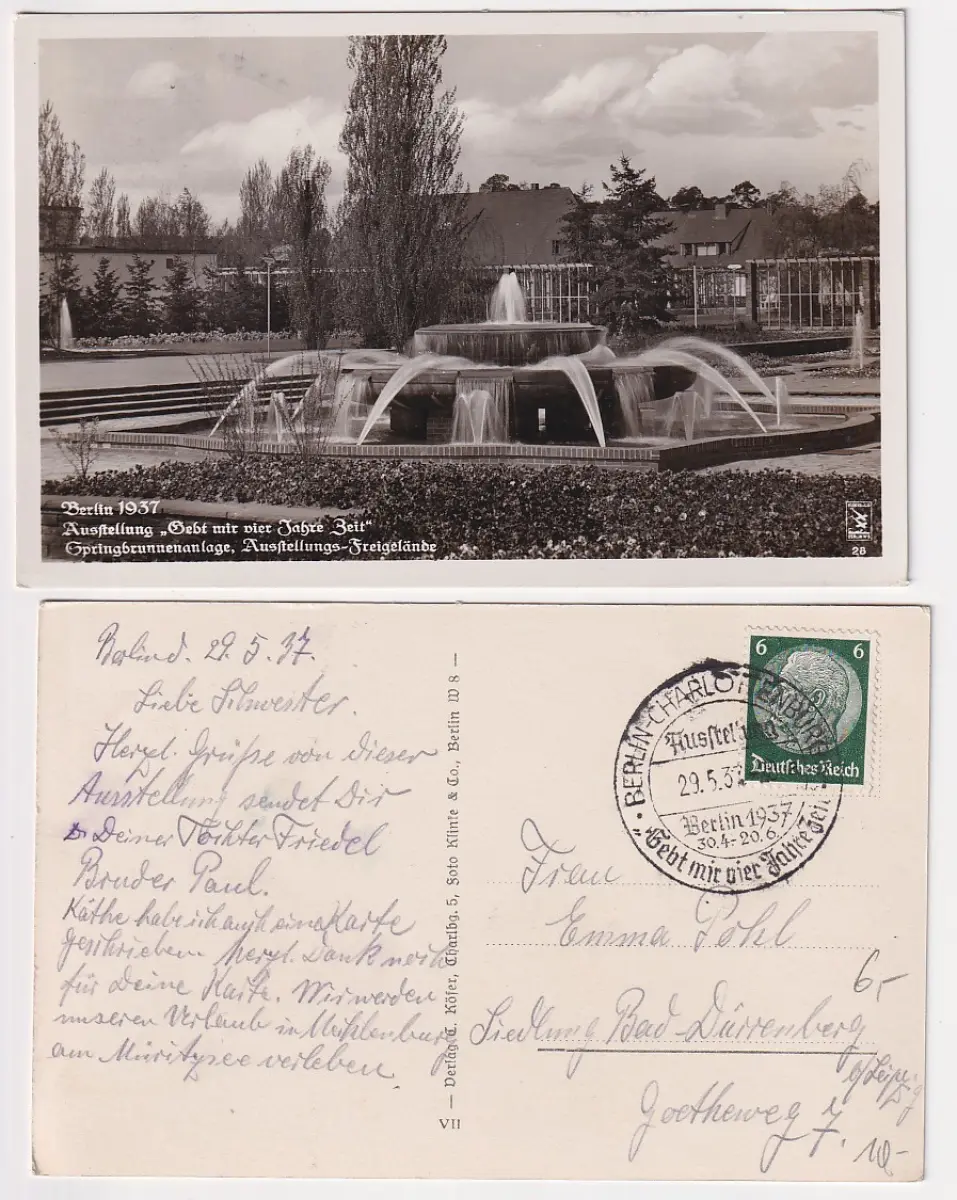 Berlin 1937
Ausstellung „Gebt mir vier Jahre Zeit“
Springbrunnenanlage, Ausstellungs-Freigelände
28
Berlin d. 29. 5. 37.
Liebe Schwester.
Herzl. Grüße von dieser
Ausstellung sendet Dir
Deiner Tochter Friedel
Bruder Paul.
Käthe habe ich auch eine Karte
geschrieben. Herzl. Dank noch
für Deine Karte. Wir werden
unseren Urlaub in Mecklenburg
am Müritzsee verleben.
VII — Verlag C. Köfer, Charlbg. 5, Foto Klinke & Co., Berlin W 8 —
6 6
Deutsches Reich
BERLIN-CHARLOTTENBURG
Ausstellung
29.5.37
Berlin 1937
30.4.-20.6.
„Gebt mir vier Jahre Zeit“
Frau
Emma Pohl
6,-
Siedlung Bad-Dürrenberg
b/Leipzig
Goetheweg 7.
10,-